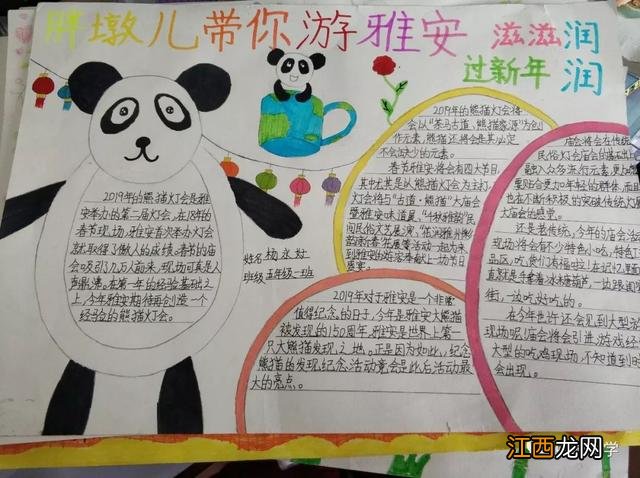 胖墩儿带你游雅安 滋滋润润
过新年
2019年的熊猫灯会是雅
安举办的第二届灯会,在18年的
春节现场,雅安首次举办大灯会
就取得了傲人的成绩。春节的庙
会吸引几万人前来,现场可真是人
声鼎沸。在第一年的经验基础之
上,今年雅安期待再创造一个
经验的熊猫灯会。
姓名
班级 五年级一班
2019年的熊猫灯会将
会以"茶马古道,熊猫家源"为创
作元素,熊猫还将会是其必定
不会缺少的元素。
春节雅安将会有四大节目,
其中尤其是以熊猫灯会为主打,
灯会将与"古道·熊猫"大庙会
暨雅安味道展、
间民俗文艺展演、
花展等活动一起为来
到雅安的游客奉献上一场节日
盛宴。
2019年对于雅安是一个非常
值得纪念的日子,今年是雅安大熊猫
被发现的150周年,雅安是世界上第一
只大熊猫发现之地。正是因为如此,纪念
熊猫的发现,纪念活动竟会是此后活动最
大的亮点。
庙会将会在传统
民俗灯会庙会的基础上
融入众多流行元素,更
要贴合更加年轻的群体,而
也在不断积极的突破传统
大庙会的感觉。
还是老传统,今年的庙会活
现场将会有不少特色小吃,特色
品区,吃货们有福
直就是手拿着冰糖葫芦,一边跟
街,一边吃好吃的。
在今年也许还会见到大型
现场呢,庙会将会引进,游戏经
大型的吃鸡现场,不知道到
会出现。
学
江西龙网